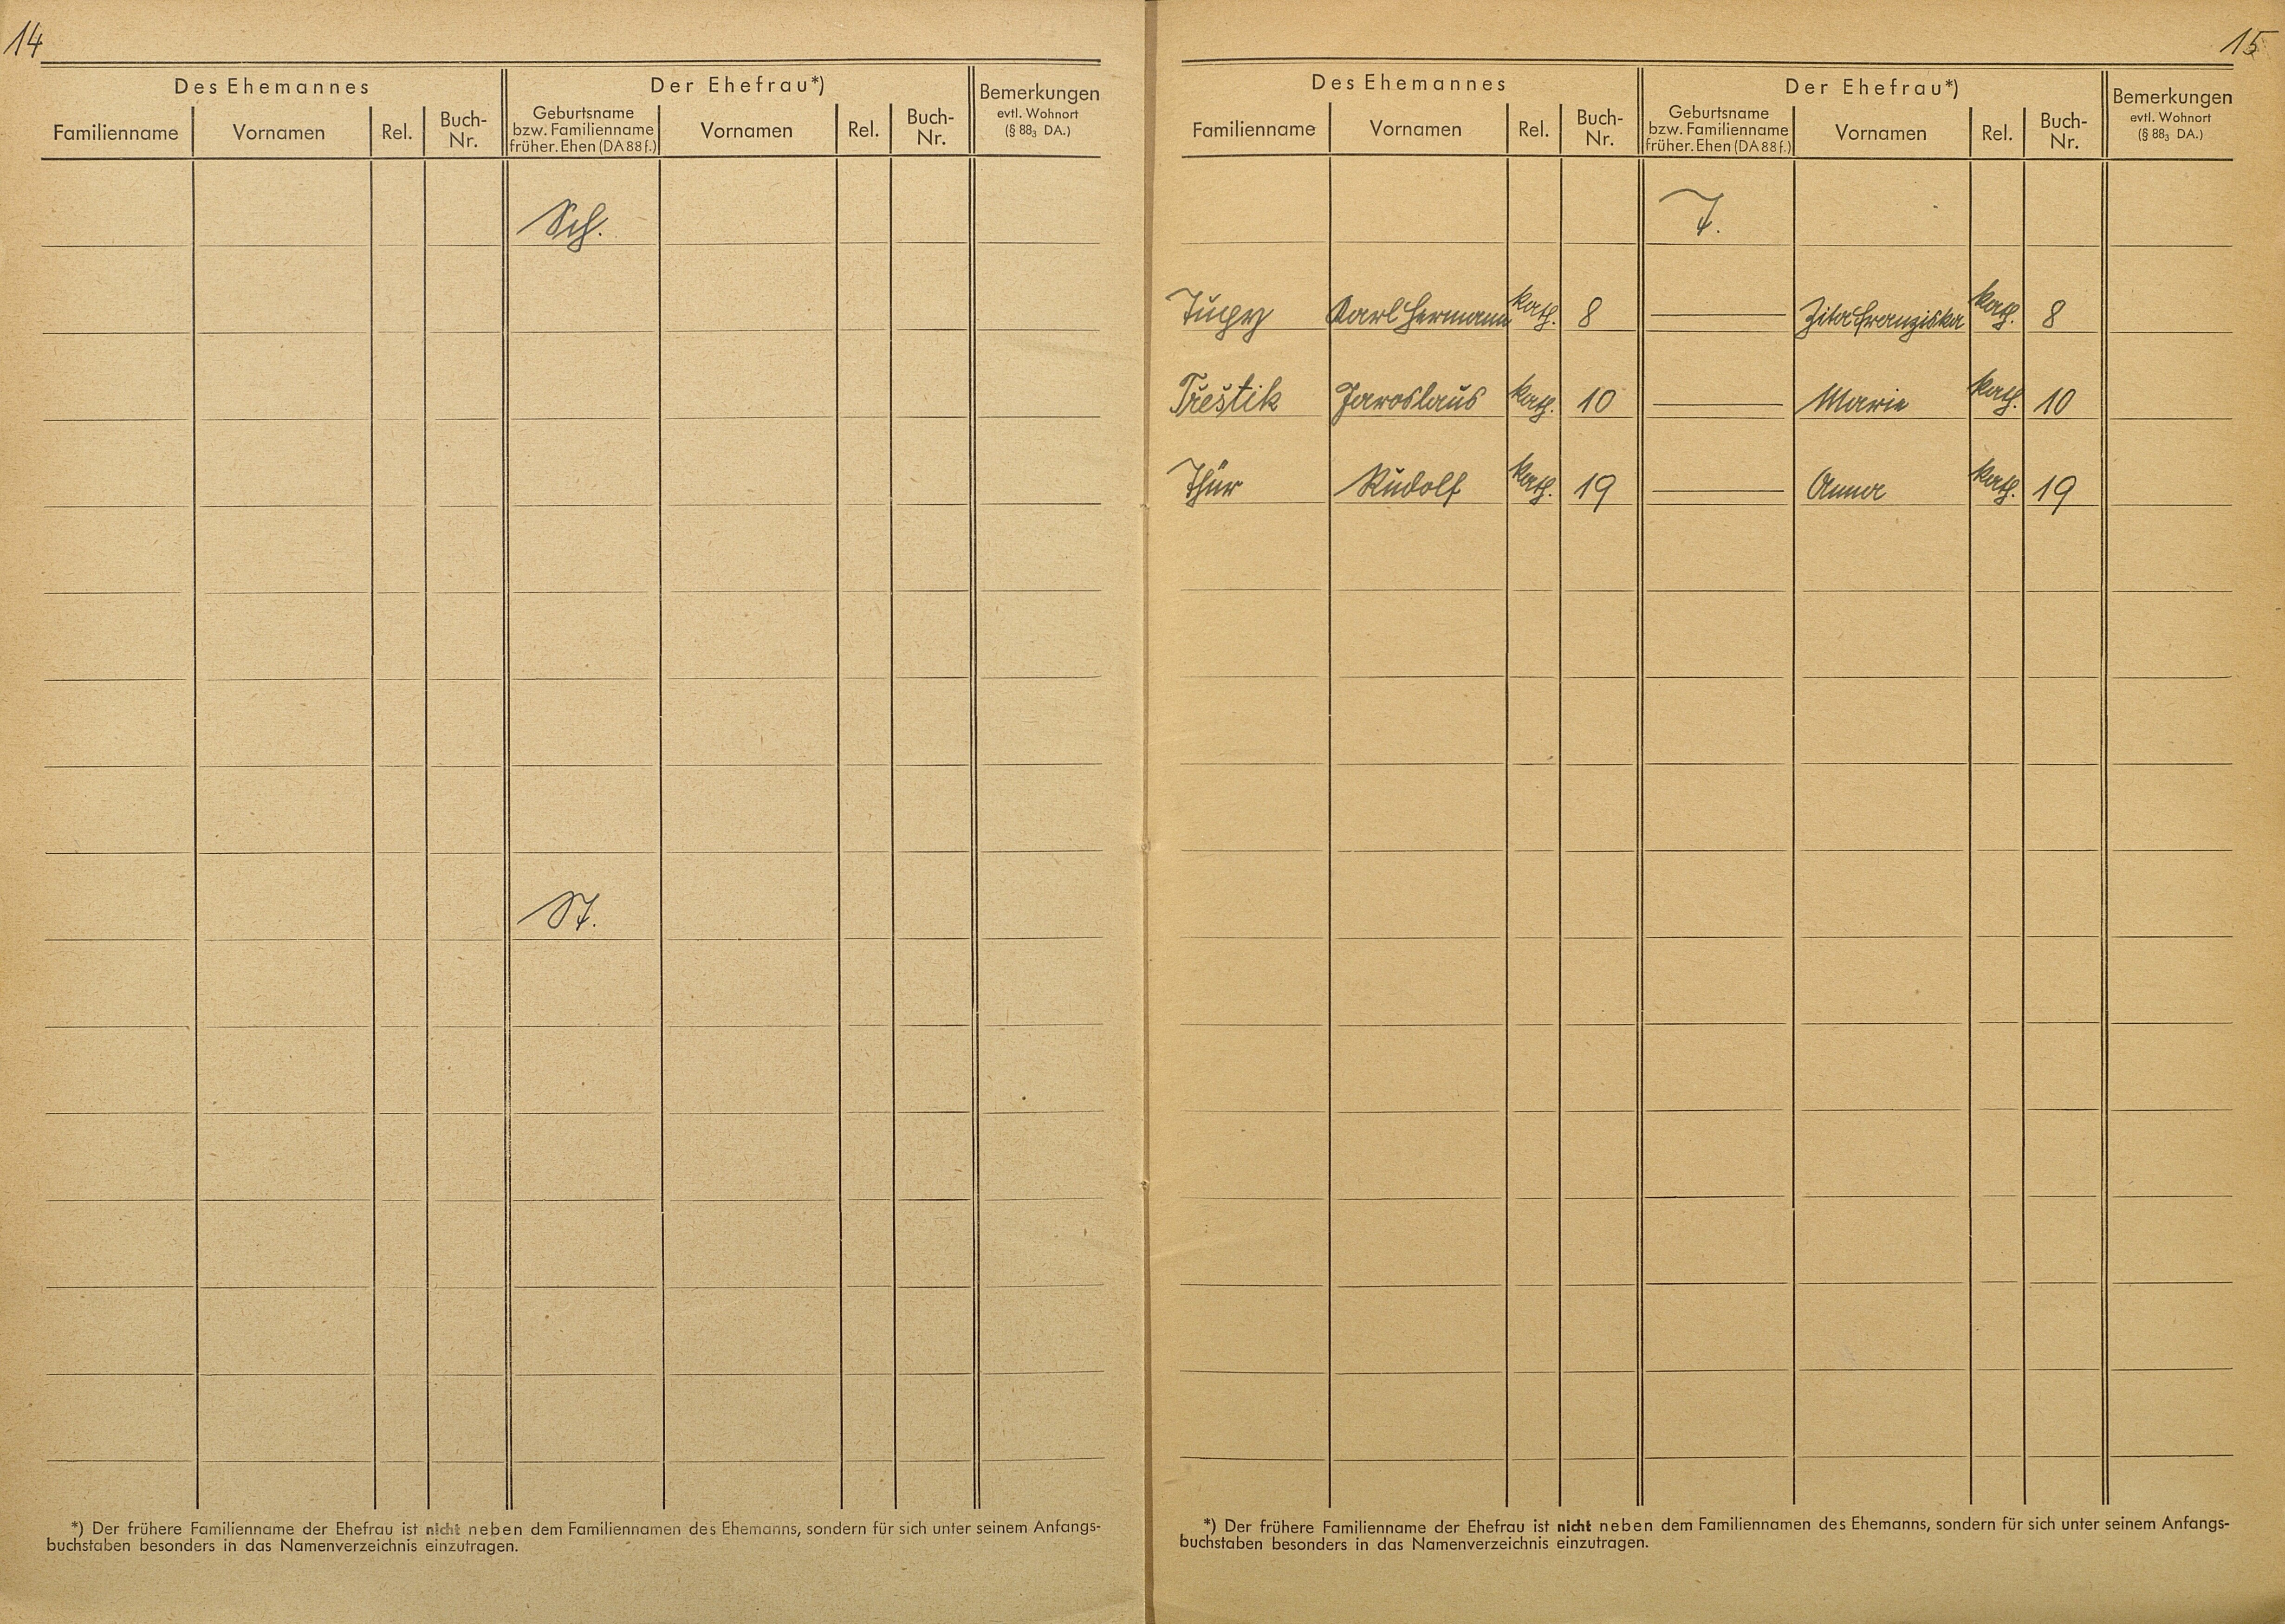 14
Des Ehemannes Der Ehefrau*) Bemerkungen evtl. Wohnort (§ 88₃ DA.)
Familienname Vornamen Rel. Buch-Nr. Geburtsname bzw. Familienname früher. Ehen (DA 88 f.) Vornamen Rel. Buch-Nr.
Sch.
St.
*) Der frühere Familienname der Ehefrau ist nicht neben dem Familiennamen des Ehemanns, sondern für sich unter seinem Anfangs-
buchstaben besonders in das Namenverzeichnis einzutragen.
15
Des Ehemannes Der Ehefrau*) Bemerkungen evtl. Wohnort (§ 88₃ DA.)
Familienname Vornamen Rel. Buch-Nr. Geburtsname bzw. Familienname früher. Ehen (DA 88 f.) Vornamen Rel. Buch-Nr.
T.
Tuchy Karl Hermann kath. 8 — Zita Franziska kath. 8
Třeštik Jaroslaus kath. 10 — Marie kath. 10
Thür Rudolf kath. 19 — Anna kath. 19
*) Der frühere Familienname der Ehefrau ist nicht neben dem Familiennamen des Ehemanns, sondern für sich unter seinem Anfangs-
buchstaben besonders in das Namenverzeichnis einzutragen.